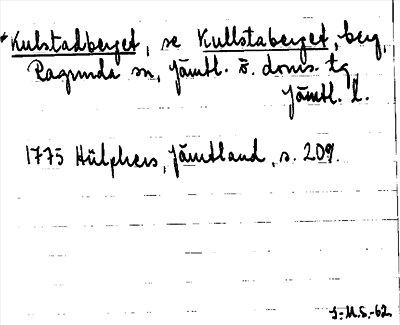 *Kulstadberget, se Kullstaberget, berg,
Ragunda sn, Jämtl. ö. doms. tg
Jämtl. l.
1775 Hülphers, Jämtland, s. 209.
J-M.S.-62.